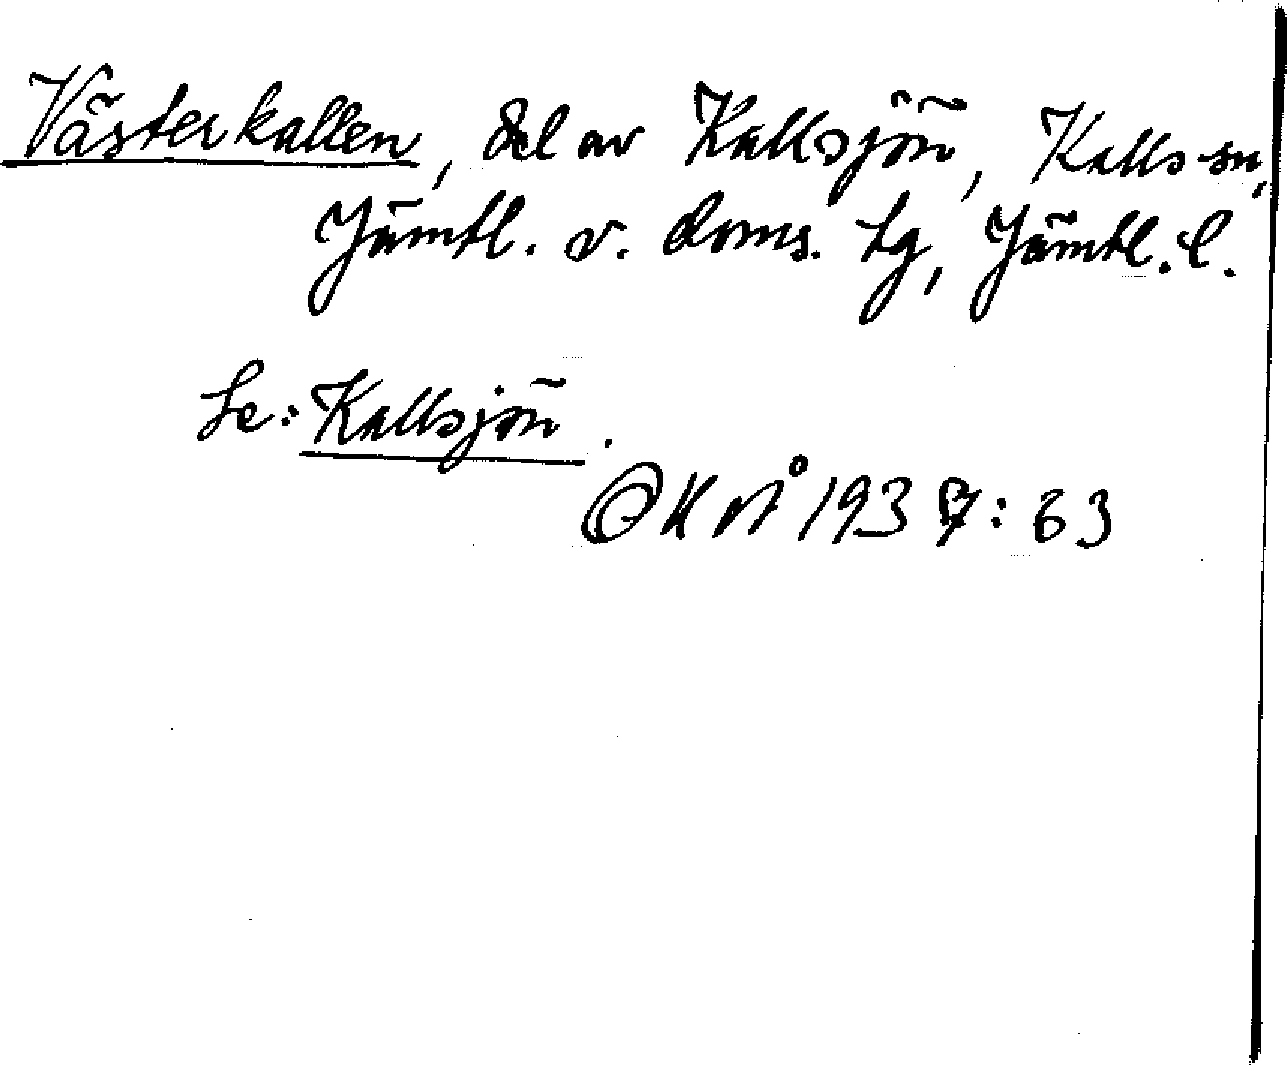 Västerkallen, del av Kallsjön, Kalls sn,
Jämtl. v. doms. tg, Jämtl. l.
Se: Kallsjön.
193 : 63